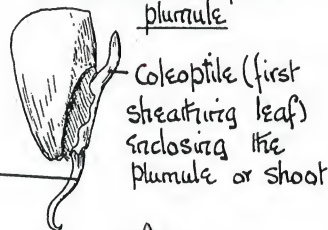 plumule
Coleoptile (first
sheathing leaf)
enclosing the
plumule or shoot